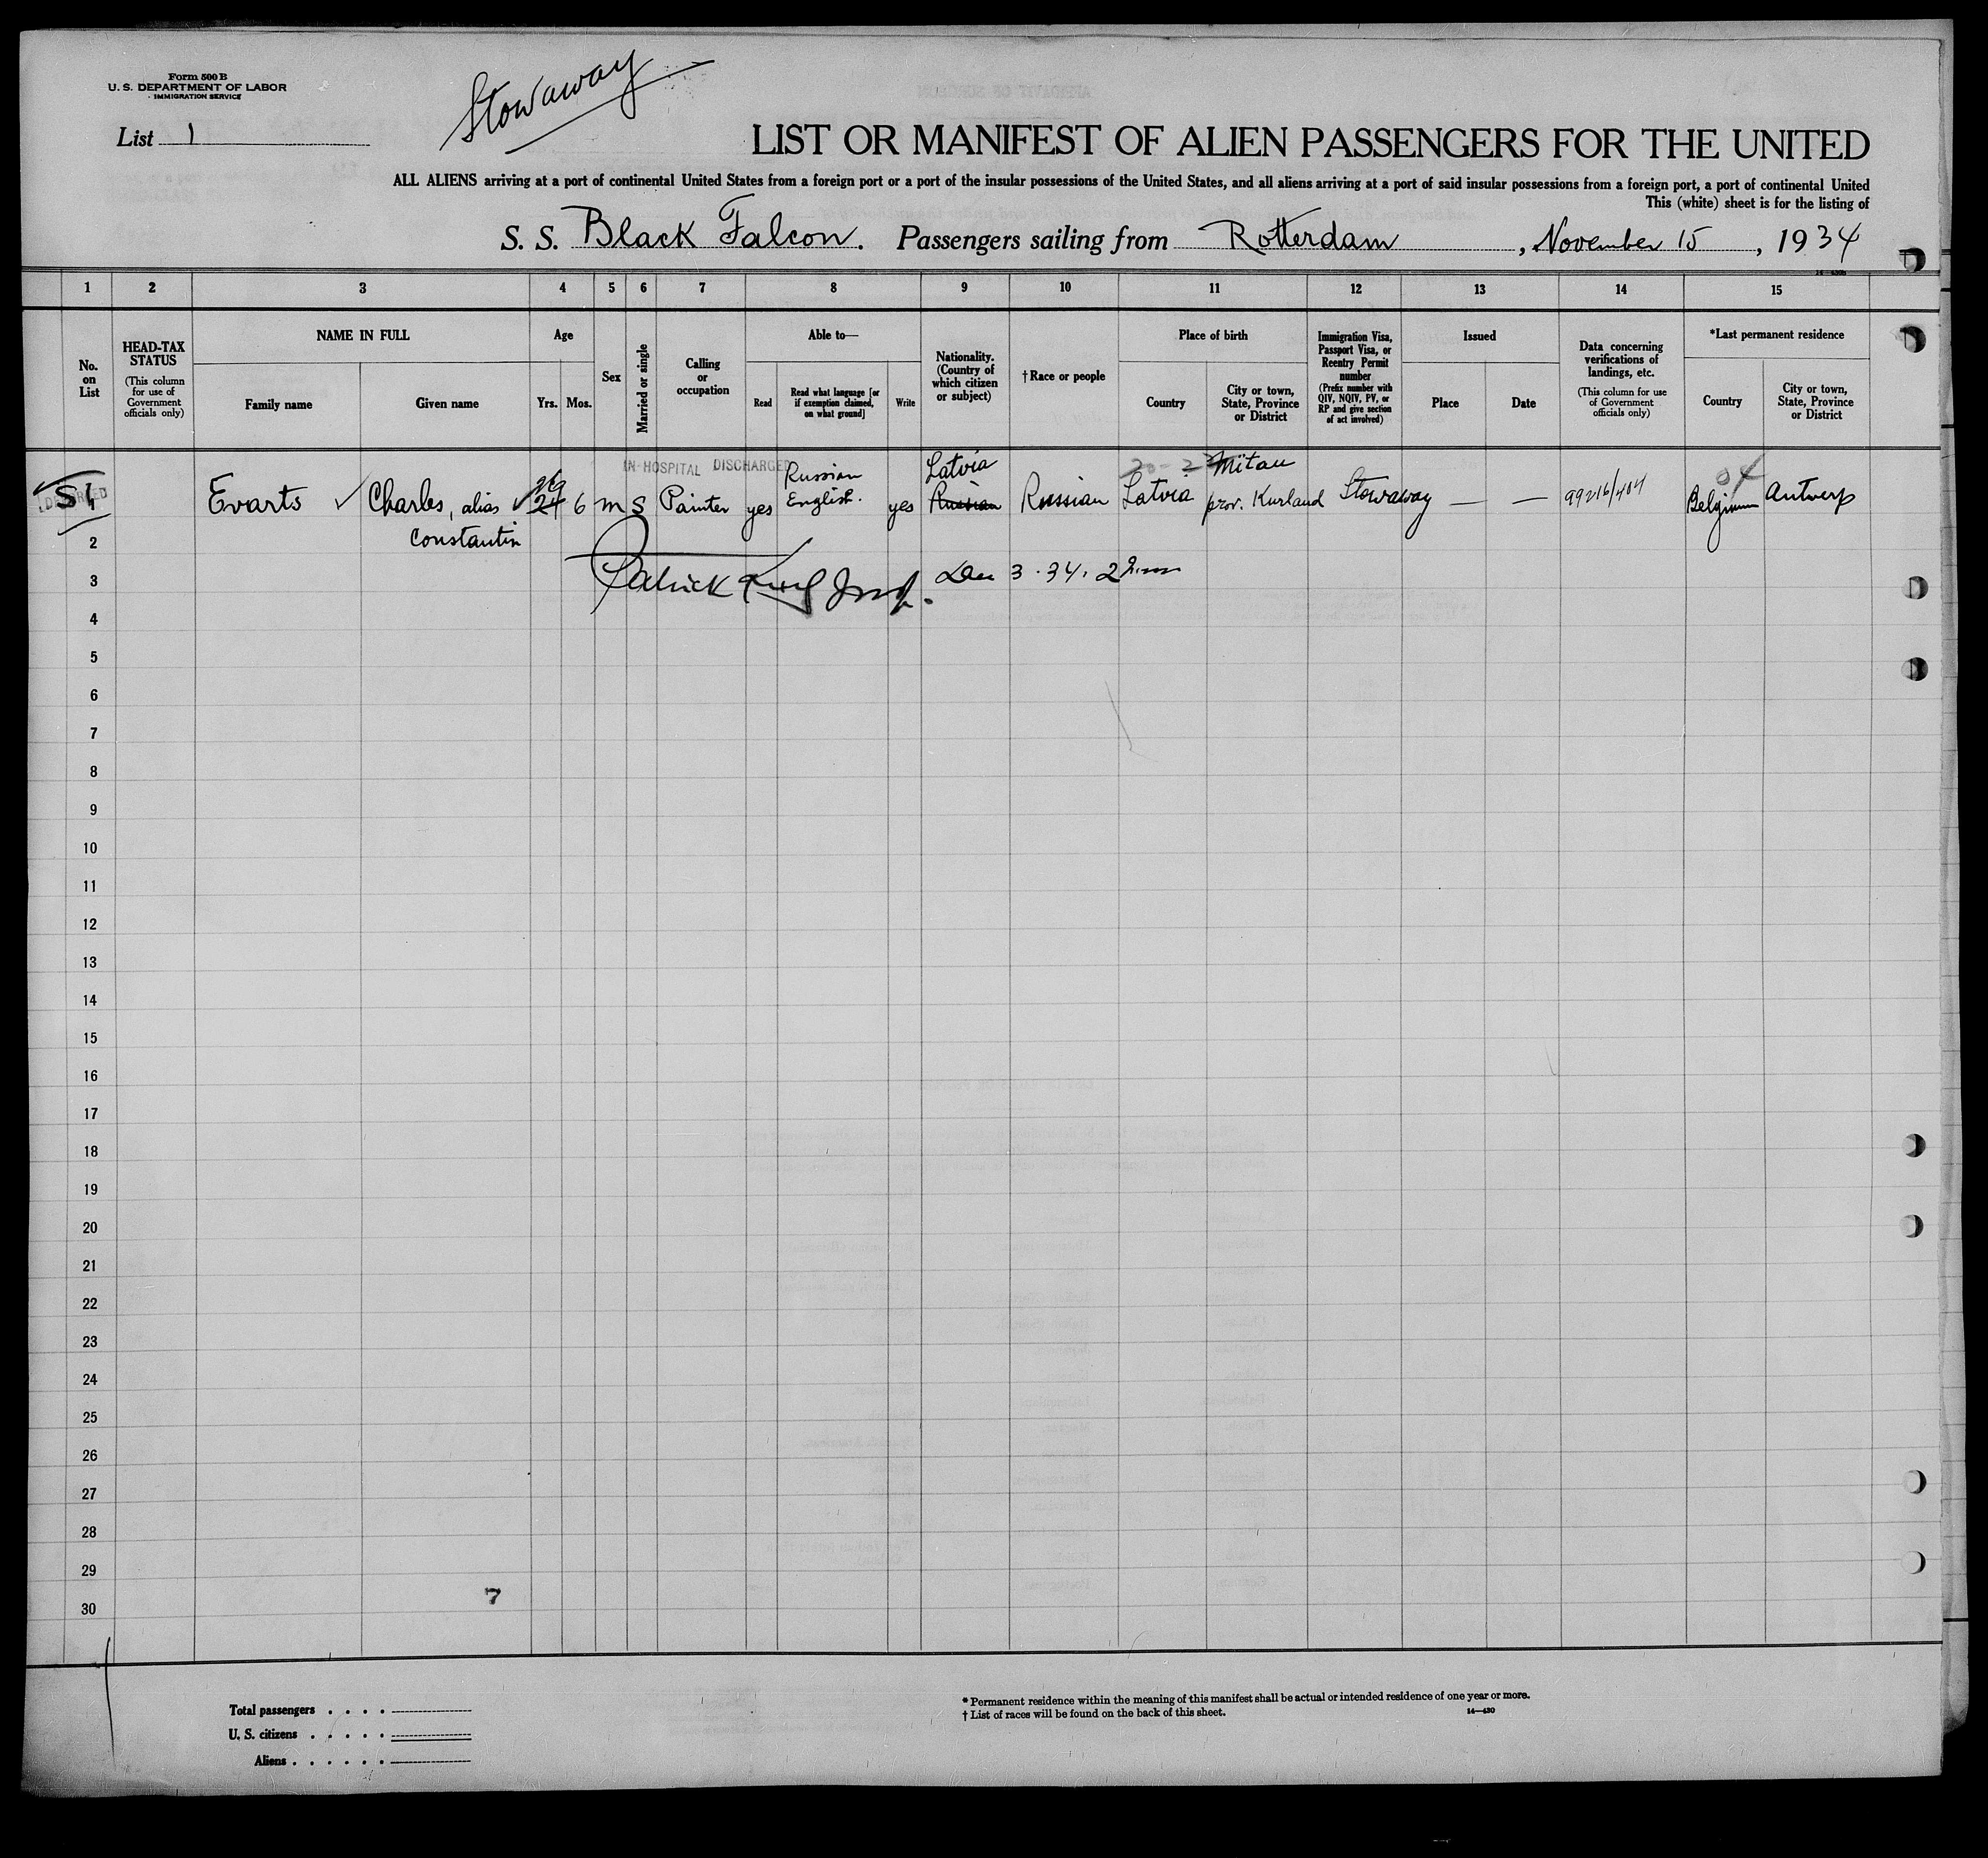 Form 500 B
U. S. DEPARTMENT OF LABOR
IMMIGRATION SERVICE
Stowaway
List 1
LIST OR MANIFEST OF ALIEN PASSENGERS FOR THE UNITED
ALL ALIENS arriving at a port of continental United States from a foreign port or a port of the insular possessions of the United States, and all aliens arriving at a port of said insular possessions from a foreign port, a port of continental United
This (white) sheet is for the listing of
S. S. Black Falcon. Passengers sailing from Rotterdam, November 15, 1934
1 2 3 4 5 6 7 8 9 10 11 12 13 14 15
No. on List
HEAD-TAX STATUS (This column for use of Government officials only)
NAME IN FULL
Family name
Given name
Age
Yrs. Mos.
Sex
Married or single
Calling or occupation
Able to—
Read
Read what language [or if exemption claimed, on what ground]
Write
Nationality. (Country of which citizen or subject)
†Race or people
Place of birth
Country
City or town, State, Province or District
Immigration Visa, Passport Visa, or Reentry Permit number (Prefix number with QIV, NQIV, PV, or RP and give section of act involved)
Issued
Place
Date
Data concerning verifications of landings, etc. (This column for use of Government officials only)
*Last permanent residence
Country
City or town, State, Province or District
IN-HOSPITAL DISCHARGED
Russian Latvia Mitau
1 Evarts Charles, alias 24 6 m S Painter yes English. yes Russian Russian Latvia prov. Kurland Stowaway — — 99216/404 Belgium Antwerp
Constantin
2
Patrick King Insp. Dec 3. 34.
3
4
5
6
7
8
9
10
11
12
13
14
15
16
17
18
19
20
21
22
23
24
25
26
27
28
29
7
30
Total passengers . . . .
U. S. citizens . . . . .
Aliens . . . . . .
* Permanent residence within the meaning of this manifest shall be actual or intended residence of one year or more.
† List of races will be found on the back of this sheet.
14—430